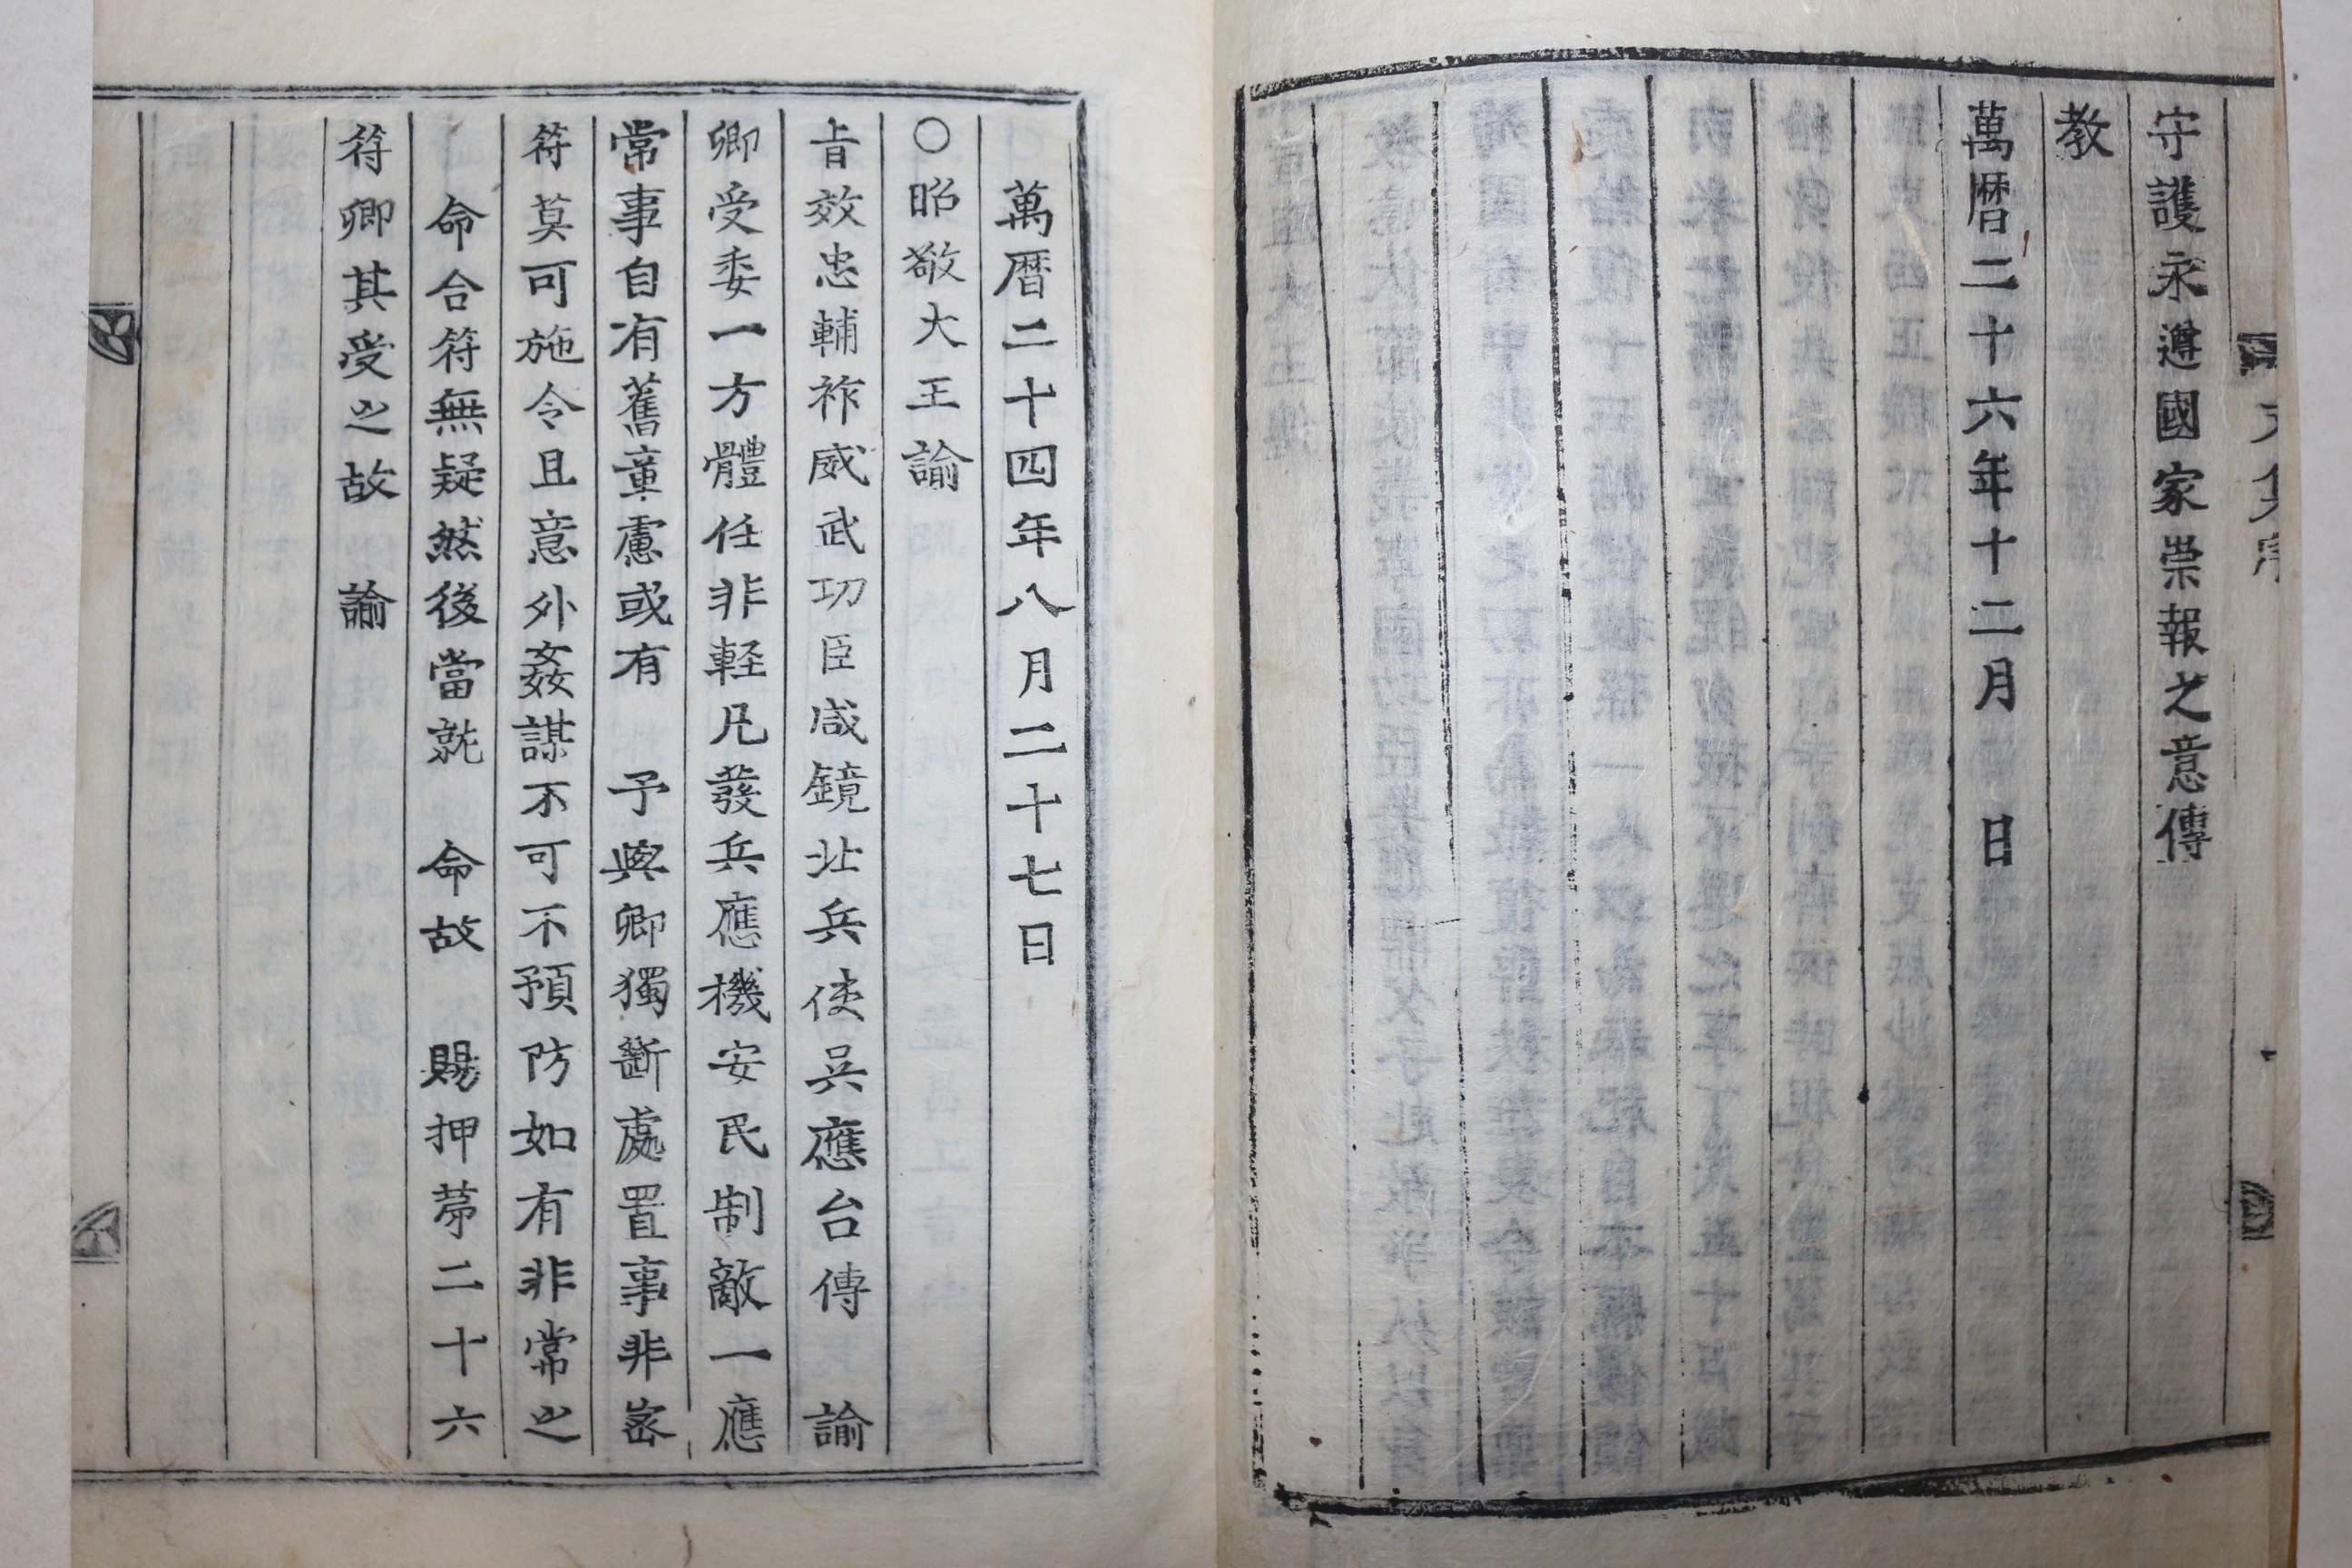 守護永遵國家崇報之意傳
教
萬曆二十六年十二月 日
萬曆二十四年八月二十七日
○昭敬大王諭
旨效忠輔祚威武功臣咸鏡北兵使吳應台傳 諭
卿受委一方體任非軽凡發兵應機安民制敵一應
常事自有舊章慮或有 予與卿獨斷處置事非密
符莫可施令且意外姦謀不可不預防如有非常之
命合符無疑然後當就 命故 賜押苐二十六
符卿其受之故 諭